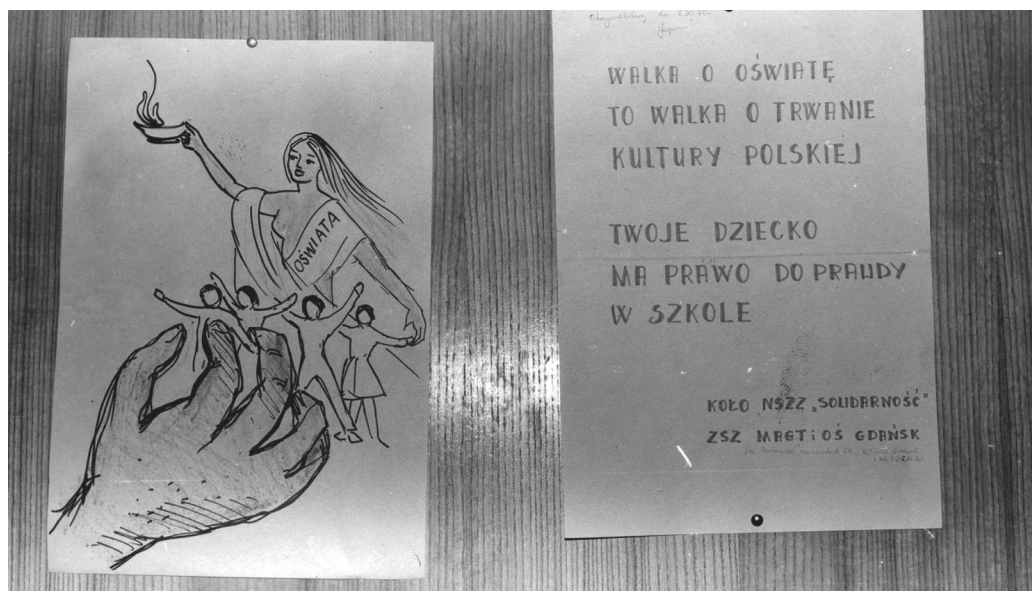 OŚWIATA
WALKA O OŚWIATĘ
TO WALKA O TRWANIE
KULTURY POLSKIEJ
TWOJE DZIECKO
MA PRAWO DO PRAWDY
W SZKOLE
KOŁO NSZZ „SOLIDARNOŚĆ"
ZSZ MAGTiOŚ GDAŃSK